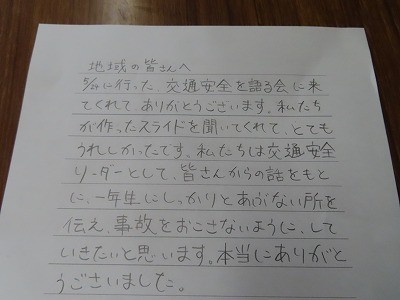 地域の皆さんへ
5/29に行った、交通安全を語る会に来
てくれて ありがとうございます。私たち
が作ったスライドを聞いてくれて、とても
うれしかったです。私たちは交通安全
リーダーとして、皆さんからの話をもと
に、一年生にしっかりとあぶない所を
伝え、事故をおこさないように、して
いきたいと思います。本当にありがと
うございました。